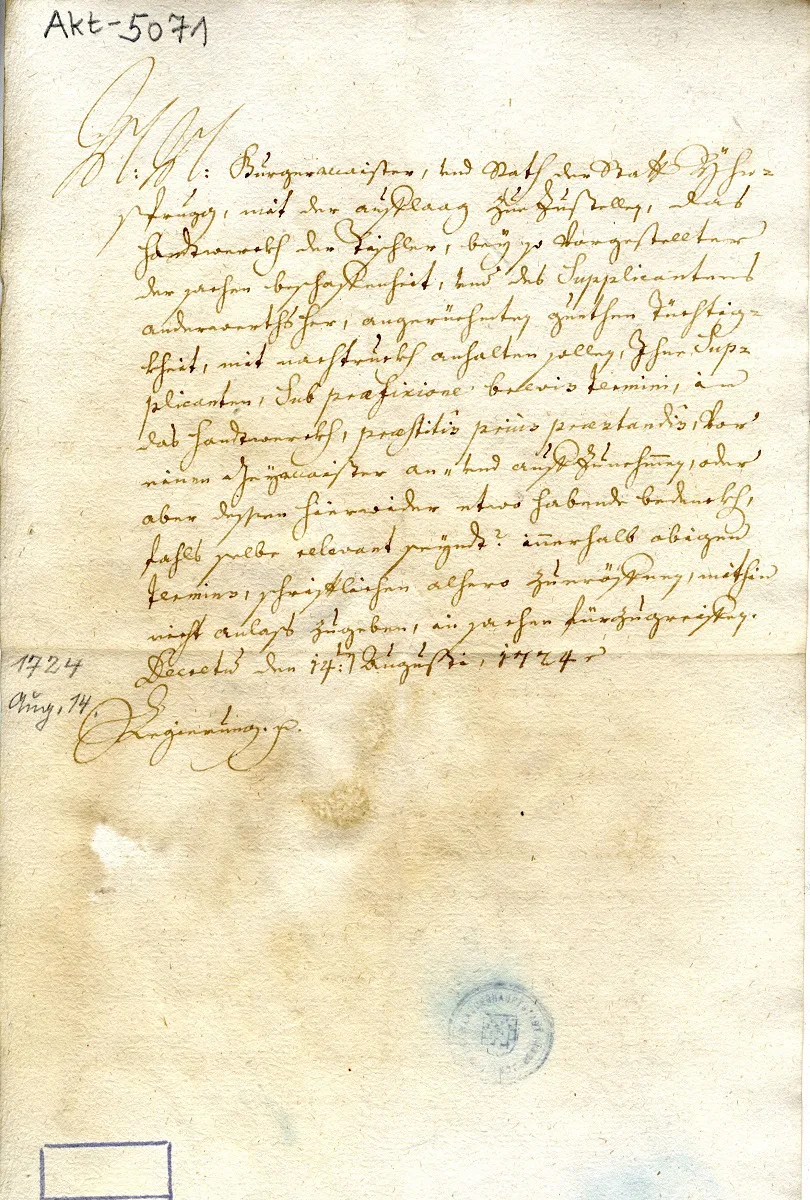 Akt-5071
N: N: Burgermaister, und Rath der Statt Yhn=
sprugg, mit der aufflaag zuezustellen, das
Handtwerckh der Tischler, bey so vorgestellter
der sachen beschaffenheit, und des Supplicantens
anderwerthsher, angerüehmten gueten Tüchtig=
kheit, mit nachtruckh anhalten sollen, Ihne Sup=
plicanten, sub praefixione brevis termini, in
das Handtwerckh, praestitis prius praestandis, vor
einen maister an- und auffzunehmen, oder
aber dessen hierwider etwo habende bedenckh,
fahls selbe relevant seyndt? innerhalb obigen
Termins, schrifftlichen alhero zueröffnen, mithin
nicht anlass zugeben, in sachen fürzugreiffen.
Decretū den 14: Augusti, 1724
1724
Aug. 14.
Regierung. p.